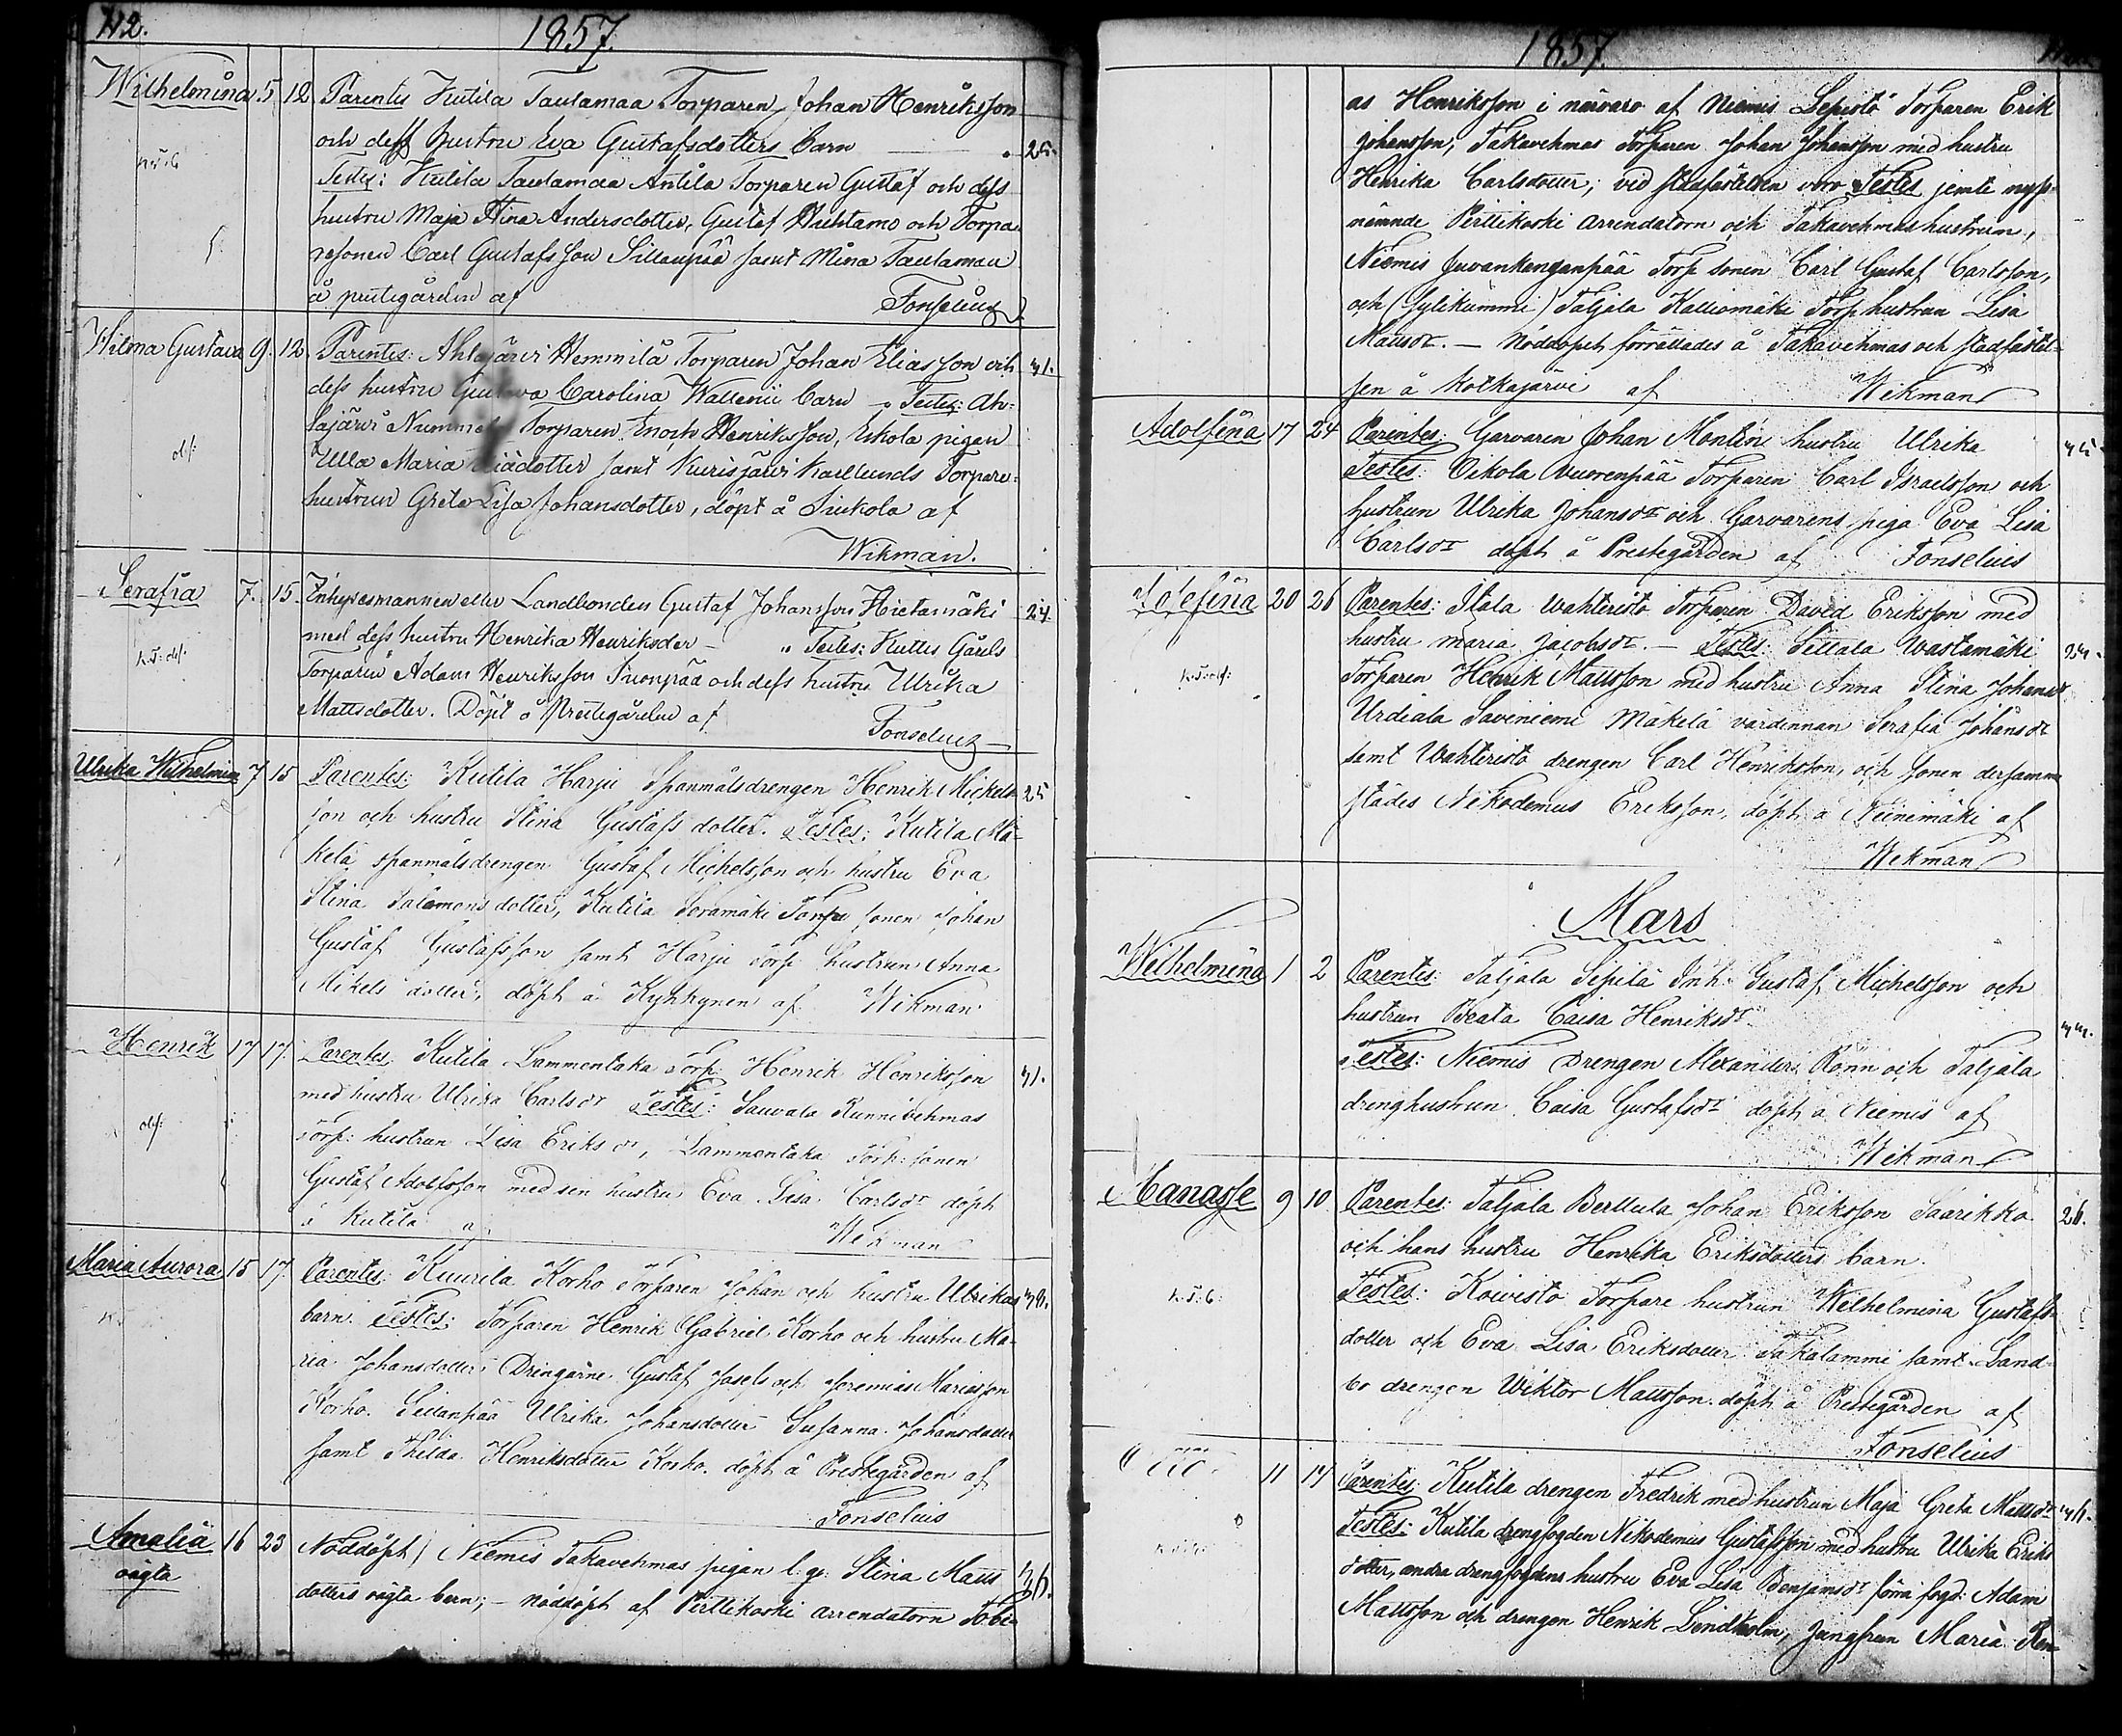 1857.
Wilhelmina 5 12 Parentes Kutila Tautamaa Torparen Johan Henriksson
och dess hustru Eva Gustafsdotters barn
Testes: Kutila Tautamaa Antila Torparen Gustaf och dess
hustru Maja Stina Andersdotter, Gustaf Huhtamo och Torpa-
resonen Carl Gustafsson Sillanpää samt Mina Tautamaa
å prestegården af Fonselius
Wilma Gustava 9. 12 Parentes: Ahlajärvi Hemmilä Torparen Johan Eliasson och 31.
dess hustru Gustava Carolina Wallenii barn Testes: Ah-
lajärvi Torparen Enoch Henriksson, Eskola pigan
Ulla Maria samt Kurisjärvi Karllunds Torpare-
hustrun Greta Lisa Johansdotter, döpt å Siukola af
Wikman.
Serafia 7. 15. Inhysesmannen eller Landbonden Gustaf Johansson Hietamäki 24.
med dess hustru Henrika Henriksdr Testes: Kuttis Gårds
Torparen Adam Henriksson Suonpää och dess hustru Ulrika
Mattsdotter. Döpt å Prestegården af Fonselius
Ulrika Wilhelmina 7 15 Parentes: Kutila Harju Spanmålsdrengen Henrik Mickels- 25
son och hustru Stina Gustafs dotter. Testes: Kutila Mä-
kelä spanmålsdrengen Gustaf Michelsson och hustru Eva
Stina Salomons dotter, Kutila Soramäki Torpa sonen Johan
Gustaf Gustafsson samt Harju torp hustrun Anna
Mikels dotter, döpt å Kykkynen af Wikman.
Henrik 17 17. Parentes: Kutila Lammentaka Torp: Henrik Henriksson 31.
med hustru Ulrika Carlsdr Testes: Sauvala Runnivehmas
Torp: hustrun Lisa Eriks dr, Lammentaka Torp: sonen
Gustaf Adolfsson med sin hustru Eva Lisa Carlsdr döpt
å Kutila af Wikman
Maria Aurora 15 17. Parentes: Kuurila Korho Torparen Johan och hustru Ulrikas 38.
barn. Testes: Torparen Henrik Gabriel Korho och hustru Ma-
ria Johansdotter, Drengarne Gustaf Josefs och Jeremias Mariasson
Korho. Sillanpää Ulrika Johansdotter Susanna Johansdotter
samt Thilda Henriksdotter Korho. döpt å Prestegården af
Fonselius
Amalia 16 23 Nöddöpt) Niemis Takavehmas pigan l. qv. Stina Matts
oägta dotters oägta barn; – nöddöpt af Pirttikoski arrendatorn Tobi-
1857.
as Henriksson i närvaro af Niemis Lepistö Torparen Erik
Johansson, Takavehmas Torparen Johan Johansson med hustru
Henrika Carlsdotter; vid stadfästelsen voro Testes jemte nyss-
nämnde Pirttikoski arrendatorn och Takavehmas hustrun,
Niemis Juvankenganpää Torp sonen Carl Gustaf Carlsson,
och (Sylikummi) Taljala Kalliomäki Torp hustrun Lisa
Mattsdr. – Nöddopet förrättades å Takavehmas och stadfästel-
sen å Kotkajärvi af Wikman
Adolfina 17 24 Parentes: Garvarin Johan Montin hustru Ulrika
Testes: Oikola Vuorenpää Torparen Carl Israelsson och
hustrun Ulrika Johansdr och Garvarens piga Eva Lisa
Carlsdr döpt å Prestegården af Fonselius
Josefina 20 26 Parentes: Itala Wahteristo Torparen David Eriksson med
hustru Maria Jacobsdr. – Testes: Sittala Wastamäki
Torparen Henrik Mattsson med hustru Anna Stina Johansdr
Urdiala Saviniemi Mäkelä värdinnan Serafia Johansdr
samt Wahteristo drengen Carl Henriksson, och sonen dersamma
städes Nikodemus Eriksson, döpt å Niinimäki af
Wikman
Mars
Wilhelmina 1 2 Parentes: Taljala Sepilä Inh: Gustaf Michelsson och
hustrun Beata Caisa Henriksdr
Testes: Niemis Drengen Alexander Rönn och Taljala
drenghustrun Caisa Gustafsdr döpt å Niemis af
Wikman
Manasse 9 10. Parentes: Taljala Berttula Johan Eriksson Saarikko 26.
och hans hustru Henrika Eriksdotters barn.
Testes: Koivisto Torpare hustrun Wilhelmina Gustafs-
dotter och Eva Lisa Eriksdotter Takalammi samt Land-
bo drengen Wiktor Mattsson. döpt å Prestegården af
Fonselius
11 14 Parentes: Kutila drengen Fredrik med hustrun Maja Greta Mattsdr
Testes: Kutila drengfogden Nikodemus Gustafsson med hustru Ulrika Eriks
dotter, andra drengfogdens hustru Eva Lisa Benjamsdr förra fogd. Adam
Mattsson och drengen Henrik Lindholm, Jungfrun Maria Ren-